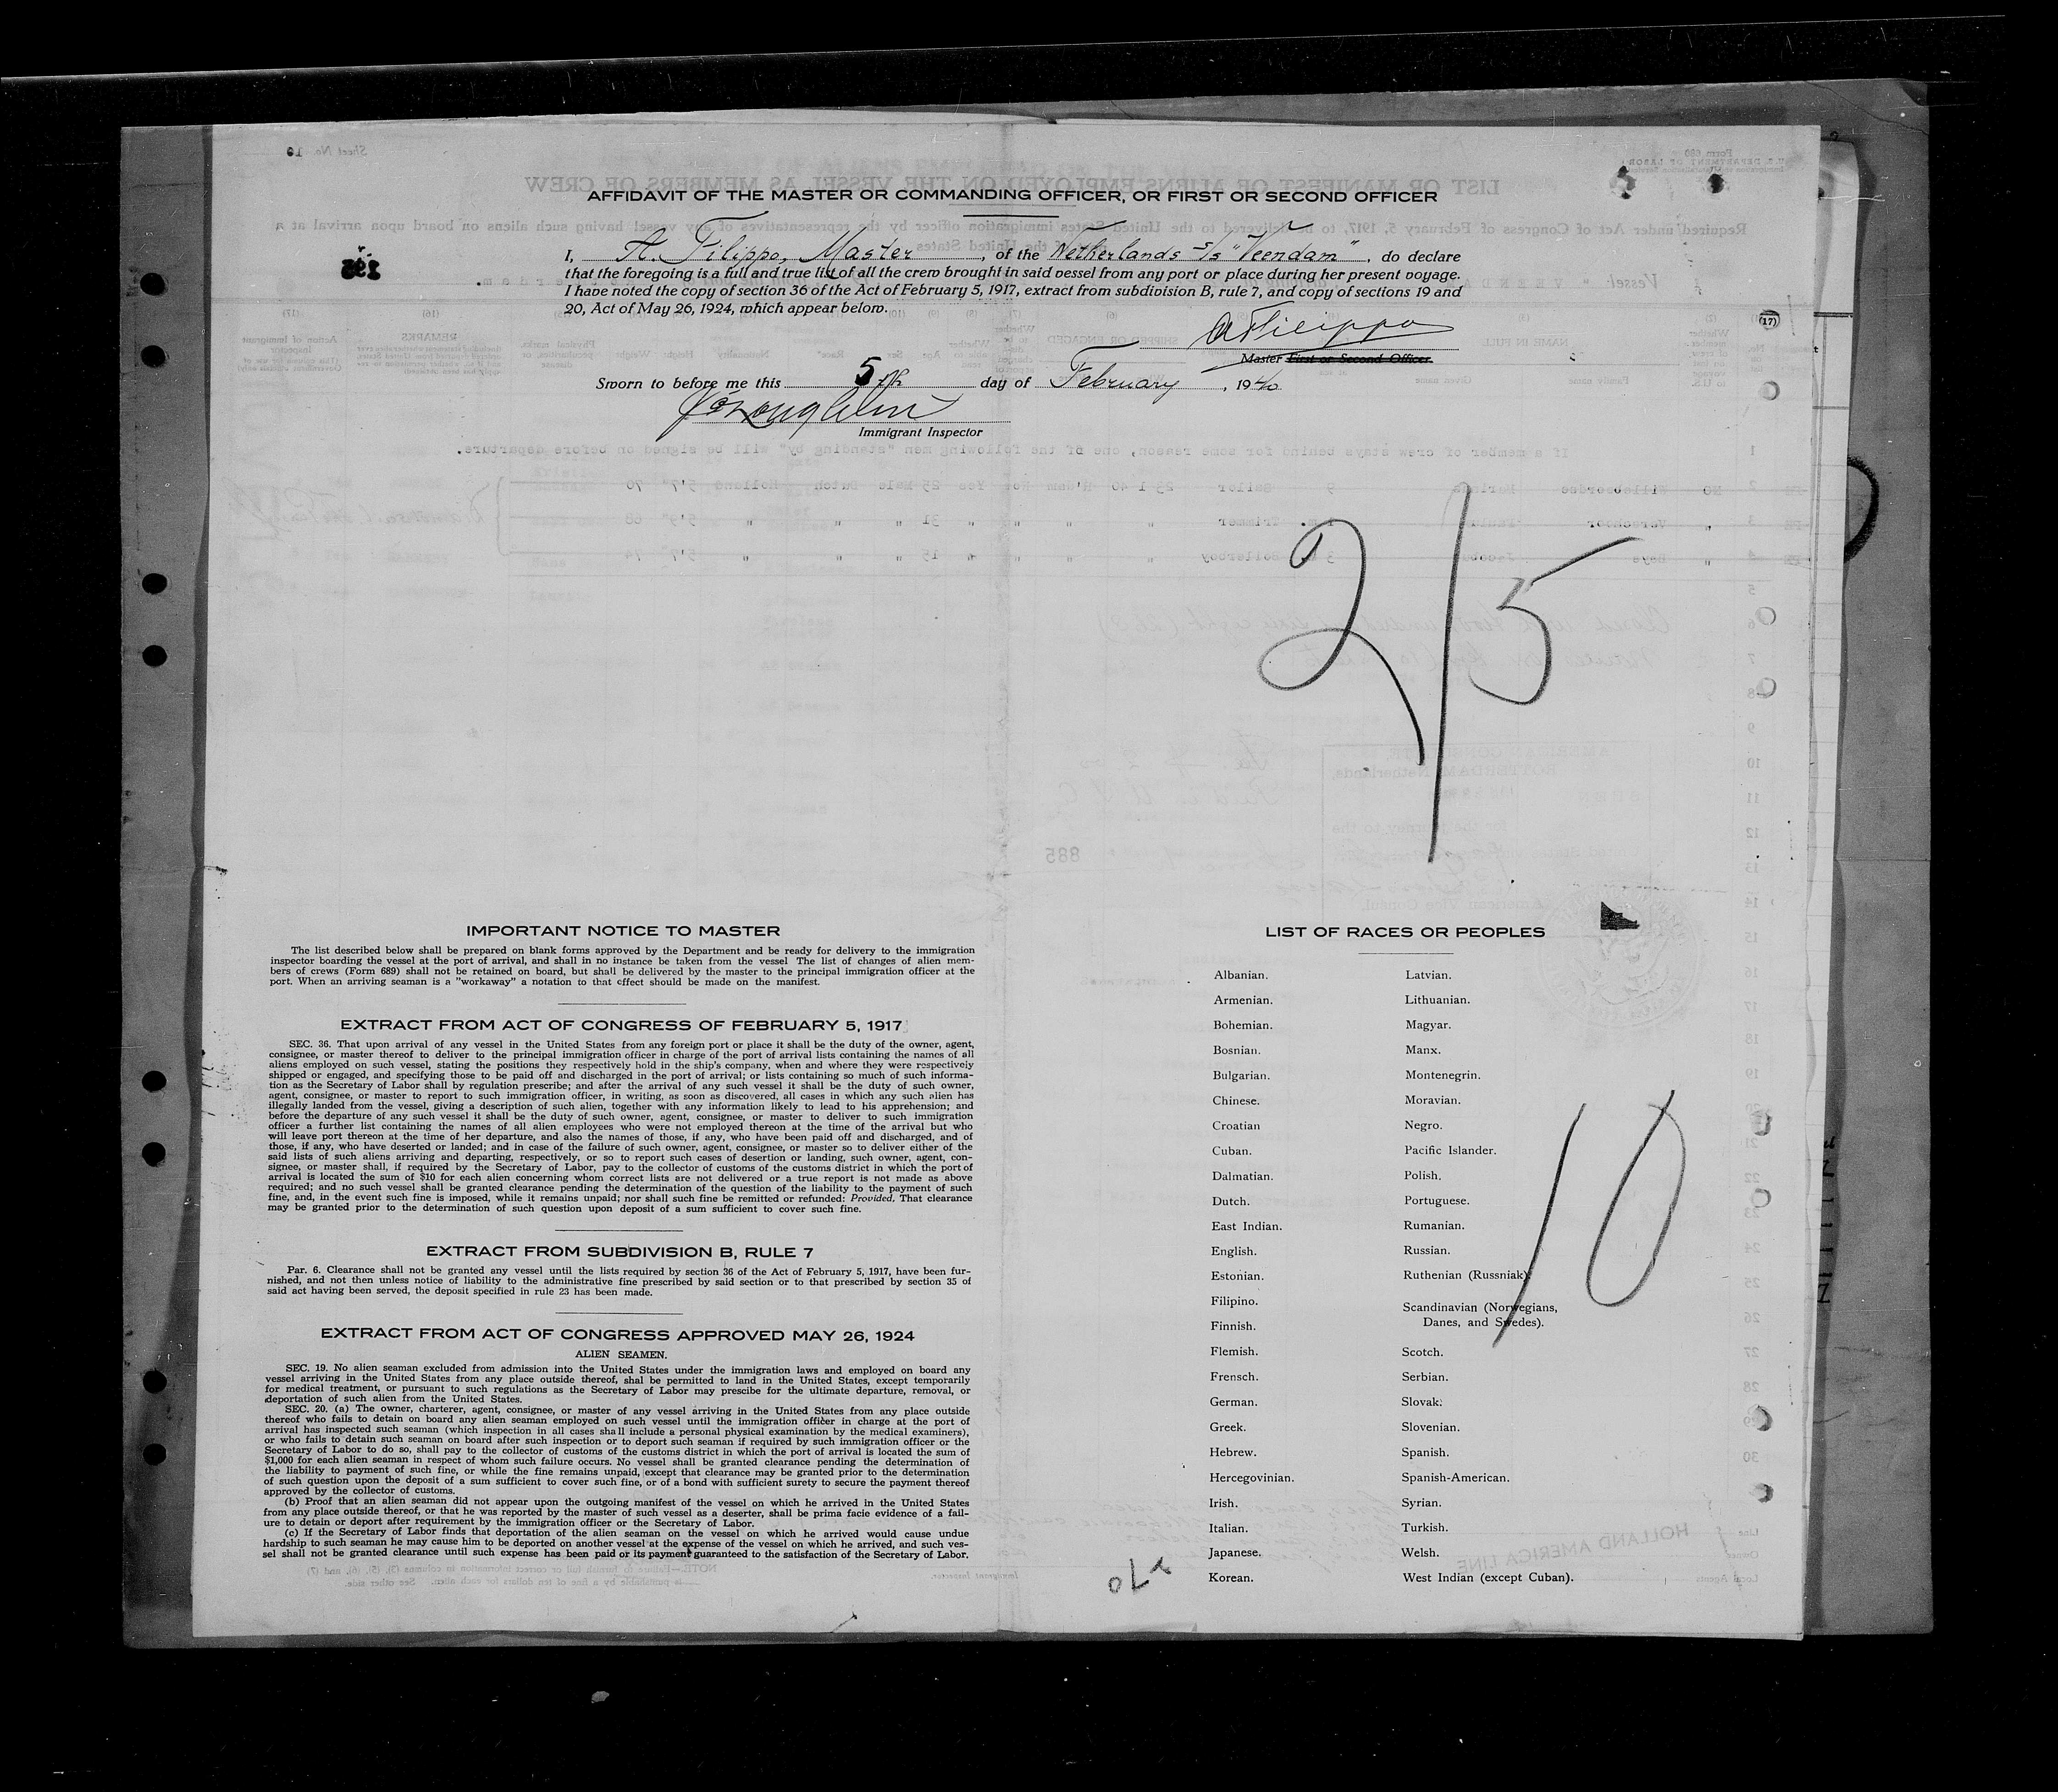 AFFIDAVIT OF THE MASTER OR COMMANDING OFFICER, OR FIRST OR SECOND OFFICER
I, A. Filippo, Master, of the Netherlands S/s "Veendam", do declare
that the foregoing is a full and true list of all the crew brought in said vessel from any port or place during her present voyage.
I have noted the copy of section 36 of the Act of February 5, 1917, extract from subdivision B, rule 7, and copy of sections 19 and
20, Act of May 26, 1924, which appear below.
AFilippo
Master First or Second Officer.
Sworn to before me this 5th day of February, 1940
Immigrant Inspector
(17)
2/5
885
IMPORTANT NOTICE TO MASTER
The list described below shall be prepared on blank forms approved by the Department and be ready for delivery to the immigration
inspector boarding the vessel at the port of arrival, and shall in no instance be taken from the vessel The list of changes of alien mem-
bers of crews (Form 689) shall not be retained on board, but shall be delivered by the master to the principal immigration officer at the
port. When an arriving seaman is a "workaway" a notation to that effect should be made on the manifest.
EXTRACT FROM ACT OF CONGRESS OF FEBRUARY 5, 1917
SEC. 36. That upon arrival of any vessel in the United States from any foreign port or place it shall be the duty of the owner, agent,
consignee, or master thereof to deliver to the principal immigration officer in charge of the port of arrival lists containing the names of all
aliens employed on such vessel, stating the positions they respectively hold in the ship's company, when and where they were respectively
shipped or engaged, and specifying those to be paid off and discharged in the port of arrival; or lists containing so much of such informa-
tion as the Secretary of Labor shall by regulation prescribe; and after the arrival of any such vessel it shall be the duty of such owner,
agent, consignee, or master to report to such immigration officer, in writing, as soon as discovered, all cases in which any such alien has
illegally landed from the vessel, giving a description of such alien, together with any information likely to lead to his apprehension; and
before the departure of any such vessel it shall be the duty of such owner, agent, consignee, or master to deliver to such immigration
officer a further list containing the names of all alien employees who were not employed thereon at the time of the arrival but who
will leave port thereon at the time of her departure, and also the names of those, if any, who have been paid off and discharged, and of
those, if any, who have deserted or landed; and in case of the failure of such owner, agent, consignee, or master so to deliver either of the
said lists of such aliens arriving and departing, respectively, or so to report such cases of desertion or landing, such owner, agent, con-
signee, or master shall, if required by the Secretary of Labor, pay to the collector of customs of the customs district in which the port of
arrival is located the sum of $10 for each alien concerning whom correct lists are not delivered or a true report is not made as above
required; and no such vessel shall be granted clearance pending the determination of the question of the liability to the payment of such
fine, and, in the event such fine is imposed, while it remains unpaid; nor shall such fine be remitted or refunded: Provided, That clearance
may be granted prior to the determination of such question upon deposit of a sum sufficient to cover such fine.
EXTRACT FROM SUBDIVISION B, RULE 7
Par. 6. Clearance shall not be granted any vessel until the lists required by section 36 of the Act of February 5, 1917, have been fur-
nished, and not then unless notice of liability to the administrative fine prescribed by said section or to that prescribed by section 35 of
said act having been served, the deposit specified in rule 23 has been made.
EXTRACT FROM ACT OF CONGRESS APPROVED MAY 26, 1924
ALIEN SEAMEN.
SEC. 19. No alien seaman excluded from admission into the United States under the immigration laws and employed on board any
vessel arriving in the United States from any place outside thereof, shal be permitted to land in the United States, except temporarily
for medical treatment, or pursuant to such regulations as the Secretary of Labor may prescibe for the ultimate departure, removal, or
deportation of such alien from the United States.
SEC. 20. (a) The owner, charterer, agent, consignee, or master of any vessel arriving in the United States from any place outside
thereof who fails to detain on board any alien seaman employed on such vessel until the immigration officer in charge at the port of
arrival has inspected such seaman (which inspection in all cases shall include a personal physical examination by the medical examiners),
or who fails to detain such seaman on board after such inspection or to deport such seaman if required by such immigration officer or the
Secretary of Labor to do so, shall pay to the collector of customs of the customs district in which the port of arrival is located the sum of
$1,000 for each alien seaman in respect of whom such failure occurs. No vessel shall be granted clearance pending the determination of
the liability to payment of such fine, or while the fine remains unpaid, except that clearance may be granted prior to the determination
of such question upon the deposit of a sum sufficient to cover such fine, or of a bond with sufficient surety to secure the payment thereof
approved by the collector of customs.
(b) Proof that an alien seaman did not appear upon the outgoing manifest of the vessel on which he arrived in the United States
from any place outside thereof, or that he was reported by the master of such vessel as a deserter, shall be prima facie evidence of a fail-
ure to detain or deport after requirement by the immigration officer or the Secretary of Labor.
(c) If the Secretary of Labor finds that deportation of the alien seaman on the vessel on which he arrived would cause undue
hardship to such seaman he may cause him to be deported on another vessel at the expense of the vessel on which he arrived, and such ves-
sel shall not be granted clearance until such expense has been paid or its payment guaranteed to the satisfaction of the Secretary of Labor.
LIST OF RACES OR PEOPLES
Albanian.
Armenian.
Bohemian.
Bosnian.
Bulgarian.
Chinese.
Croatian
Cuban.
Dalmatian.
Dutch.
East Indian.
English.
Estonian.
Filipino.
Finnish.
Flemish.
Frensch.
German.
Greek.
Hebrew.
Hercegovinian.
Irish.
Italian.
Japanese.
Korean.
Latvian.
Lithuanian.
Magyar.
Manx.
Montenegrin.
Moravian.
Negro.
Pacific Islander.
Polish.
Portuguese.
Rumanian.
Russian.
Ruthenian (Russniak).
Scandinavian (Norwegians,
Danes, and Swedes).
Scotch.
Serbian.
Slovak.
Slovenian.
Spanish.
Spanish-American.
Syrian.
Turkish.
Welsh.
West Indian (except Cuban).
10